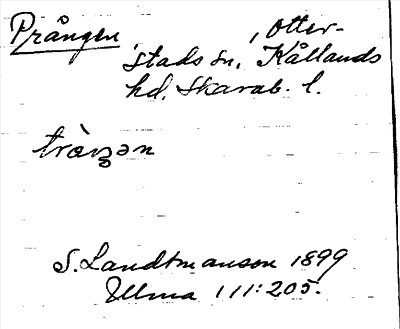 Prången, Otter-
stads sn, Kållands
hd, Skarab. l.
S. Landtmanson 1899
Ulma 111:205.